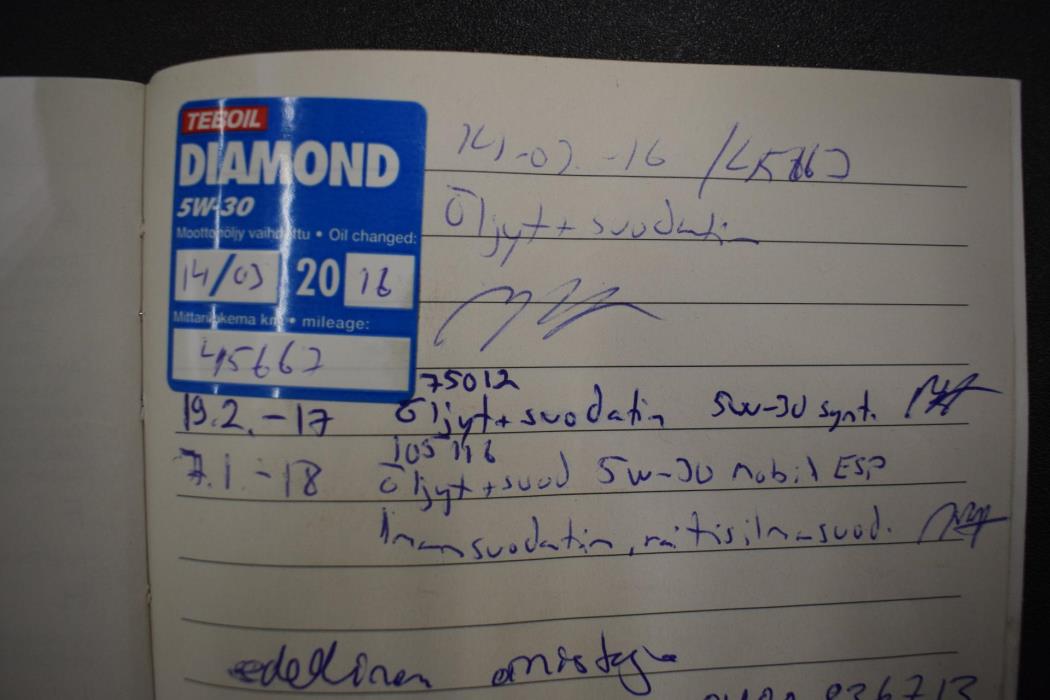 TEBOIL
DIAMOND
5W-30
Moottoriöljy vaihdettu • Oil changed:
14/03 2016
Mittarilukema km • mileage:
45667
14.03.-16 /
Öljyt + suodatin
75012
19.2.-17 Öljyt + suodatin 5W-30 synt.
105116
7.1.-18 Öljyt + suod 5W-30 Mobil ESP
Ilmansuodatin, raitisilmasuod.
edellinen omistaja
836713